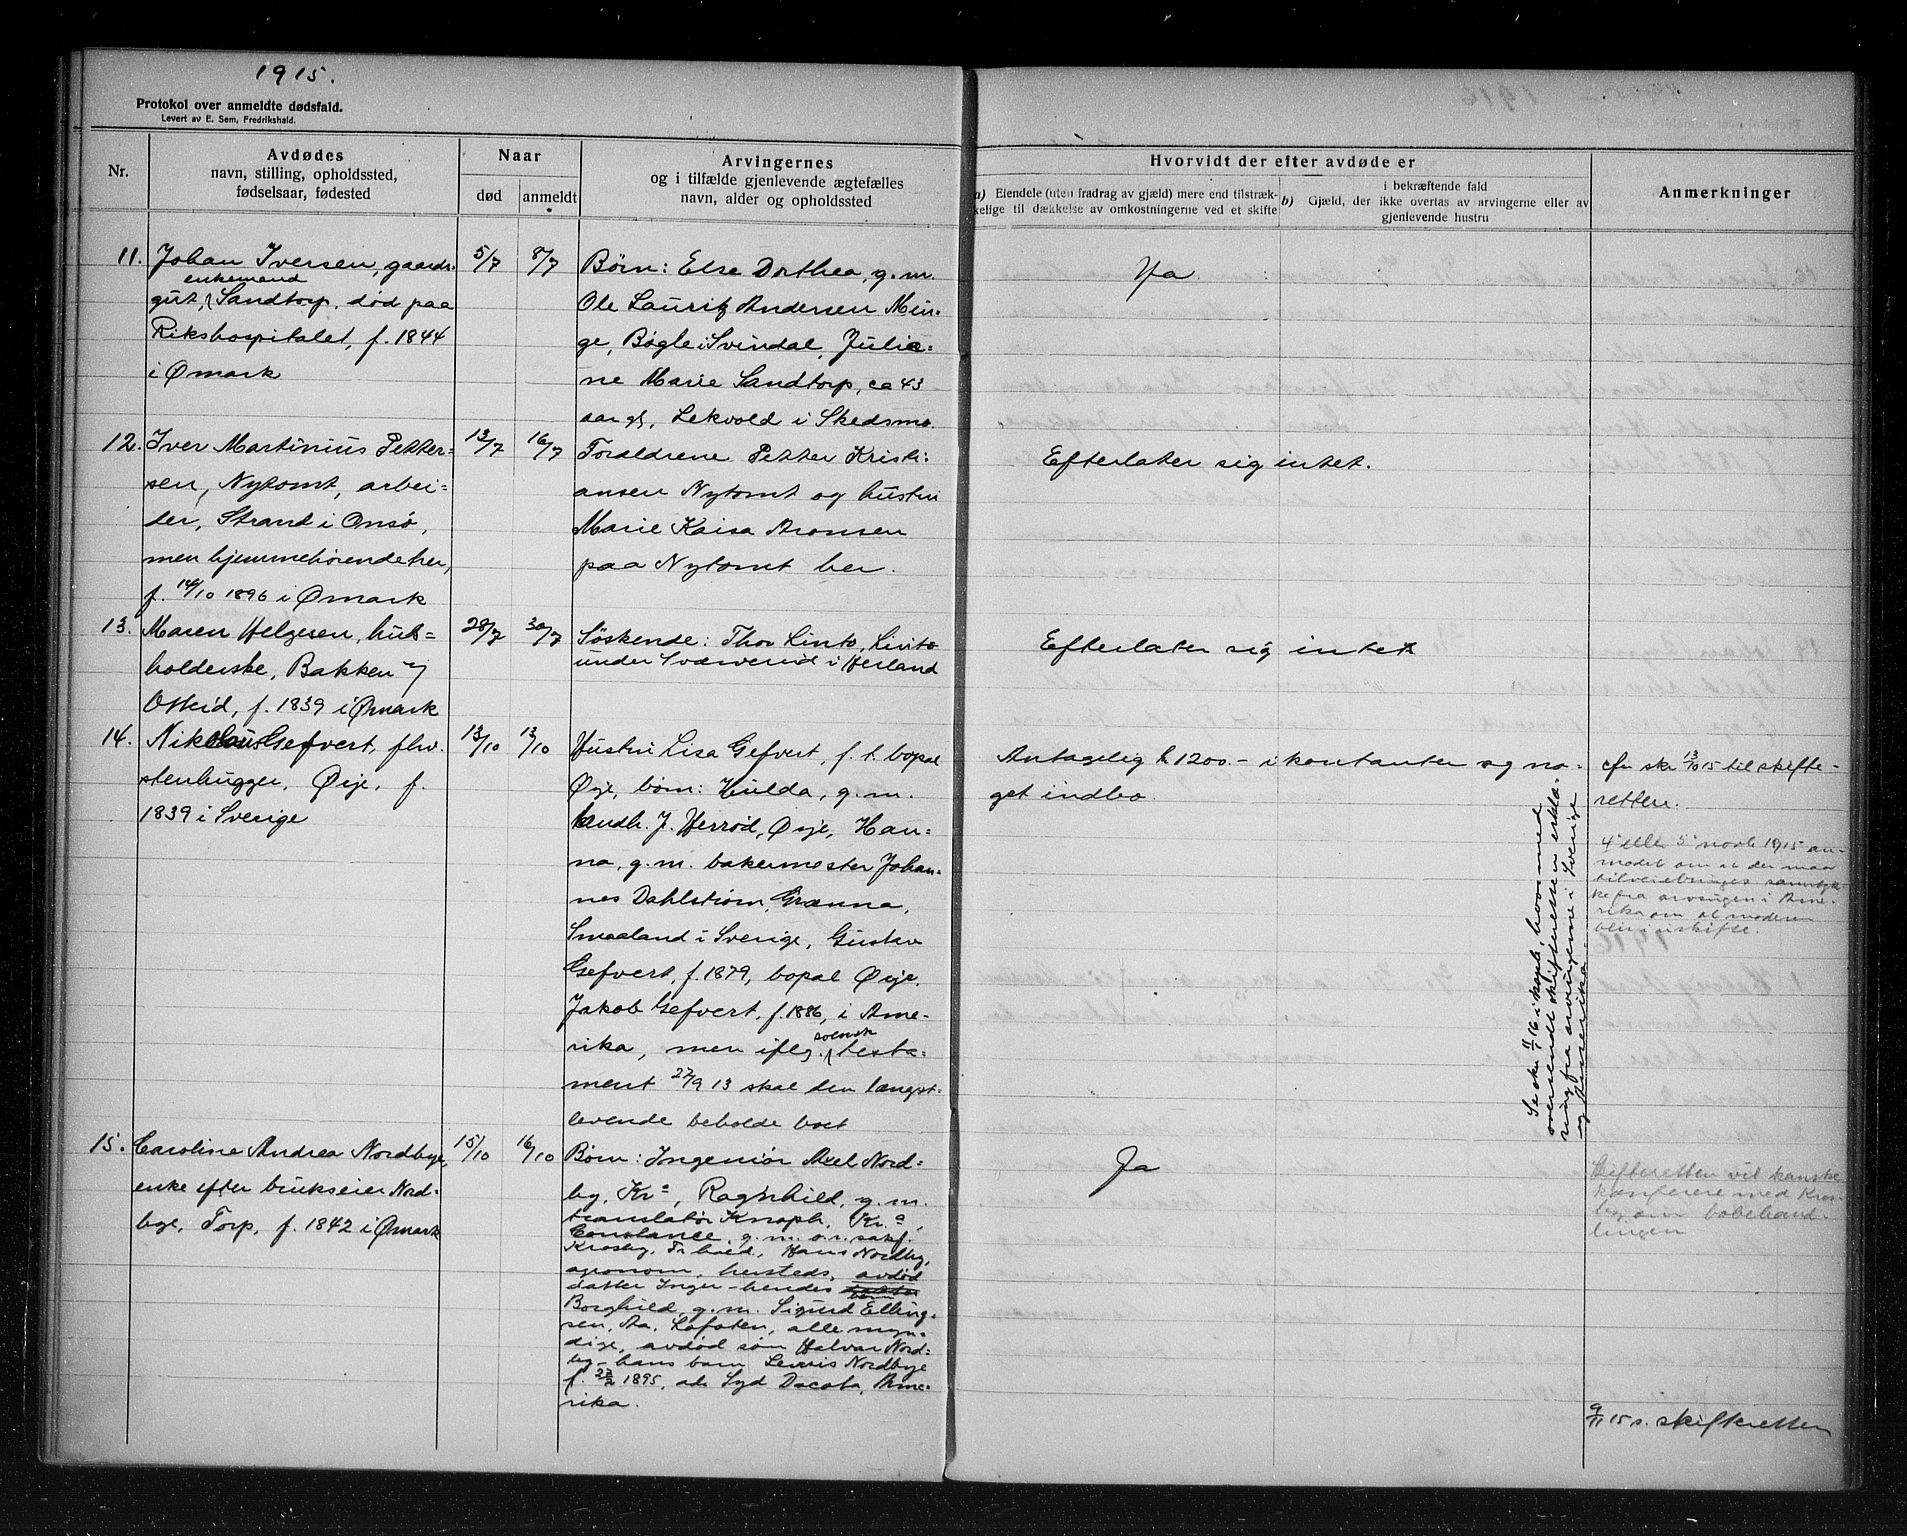 1915.
Protokol over anmeldte dødsfald.
Levert av E. Sem, Fredrikshald.
Nr.
Avdødes
navn, stilling, opholdssted,
fødselsaar, fødested
Naar
død
anmeldt
Arvingernes
og i tilfælde gjenlevende ægtefælles
navn, alder og opholdssted
Hvorvidt der efter avdøde er
a) Eiendele (uten fradrag av gjæld) mere end tilstræk-
kelige til dækkelse av omkostningerne ved et skifte
b) i bekræftende fald
Gjæld, der ikke overtas av arvingerne eller av
gjenlevende hustru
Anmerkninger
11. Johan Iversen, gaards-
enkemand
gut, Sandtorp, død paa
Rikshospitalet, f. 1844
i Ømark
5/7
8/7
Børn: Else Dorthea, g. m.
Ole Lauritz Andersen Min-
ge, Bøgle i Svindal, Julia-
ne Marie Sandtorp, ca 43
aar gl, Lekvold i Skedsmo
Ja
12. Iver Martinius Petter=
sen, Nytomt, arbei-
der, Strand i Onsø,
men hjemmehørende her,
f. 14/10 1896 i Ømark
13/7
16/7
Forældrene Petter Kristi-
ansen Nytomt og hustru
Marie Kaisa Aronsen
paa Nytomt her.
Efterlater sig intet.
13. Maren Helgesen, hus=
holderske, Bakken u/
Otteid, f. 1839 i Ømark
28/7
30/7
Søskende: Thor Linto, Linto
under i Herland
Efterlater sig intet
14. Nikolaus Gefvert, fhv.
stenhugger, Ørje, f.
1839 i Sverige
13/10
13/10
Hustru Lisa Gefvert, f. t. bopæl
Ørje, børn: Hulda, g. m.
landh. J. Herrød, Ørje, Han-
na, g. m. bakermester Johan-
nes Dahlstrøm, Grænna,
Smaaland i Sverige, Gustav
Gefvert, f. 1879, bopæl Ørje,
Jakob Gefvert, f. 1886, i Ame-
rika, men iflg. svensk testa-
ment 27/9 13 skal den længst-
levende beholde boet
Antagelig k 1200.- i kontanter og no-
get indbo.
Se skr 11/1 16 i kopib. hvormed
oversendt skifteretten erklæ-
ring fra arvingerne i Sverige
og Amerika.
cfr skr 13/10 15 til skifte-
retten.
4 eller 5 novb 1915 an-
modet om at der maa
tilveiebringes samtyk-
ke fra arvingen i Ame-
rika om at moderen
blir i uskifte.
15. Caroline Andrea Nordbye,
enke efter brukseier Nord-
bye, Torp, f. 1842 i Ømark
15/10
16/10
Børn: Ingeniør Axel Nord=
by, Kra, Ragnhild, g. m.
translatør Knoph, Kra,
Constance, g. m. o. r. sakf.
Krosby, Fr.hald, Hans Nordby,
agronom, hersteds, avdød
datter Inger - hendes barn
Borghild, g. m. Sigurd Elling-
sen, Aa, Lofoten, alle myn-
dige, avdød søn Halvar Nord=
by - hans barn Nordbye
f. 1895, adr Syd Dacota, Ame-
rika.
Ja
Skifteretten vil kanske
konferere med Kros-
by om bobehand-
lingen
9/11 15 s. skifteretten